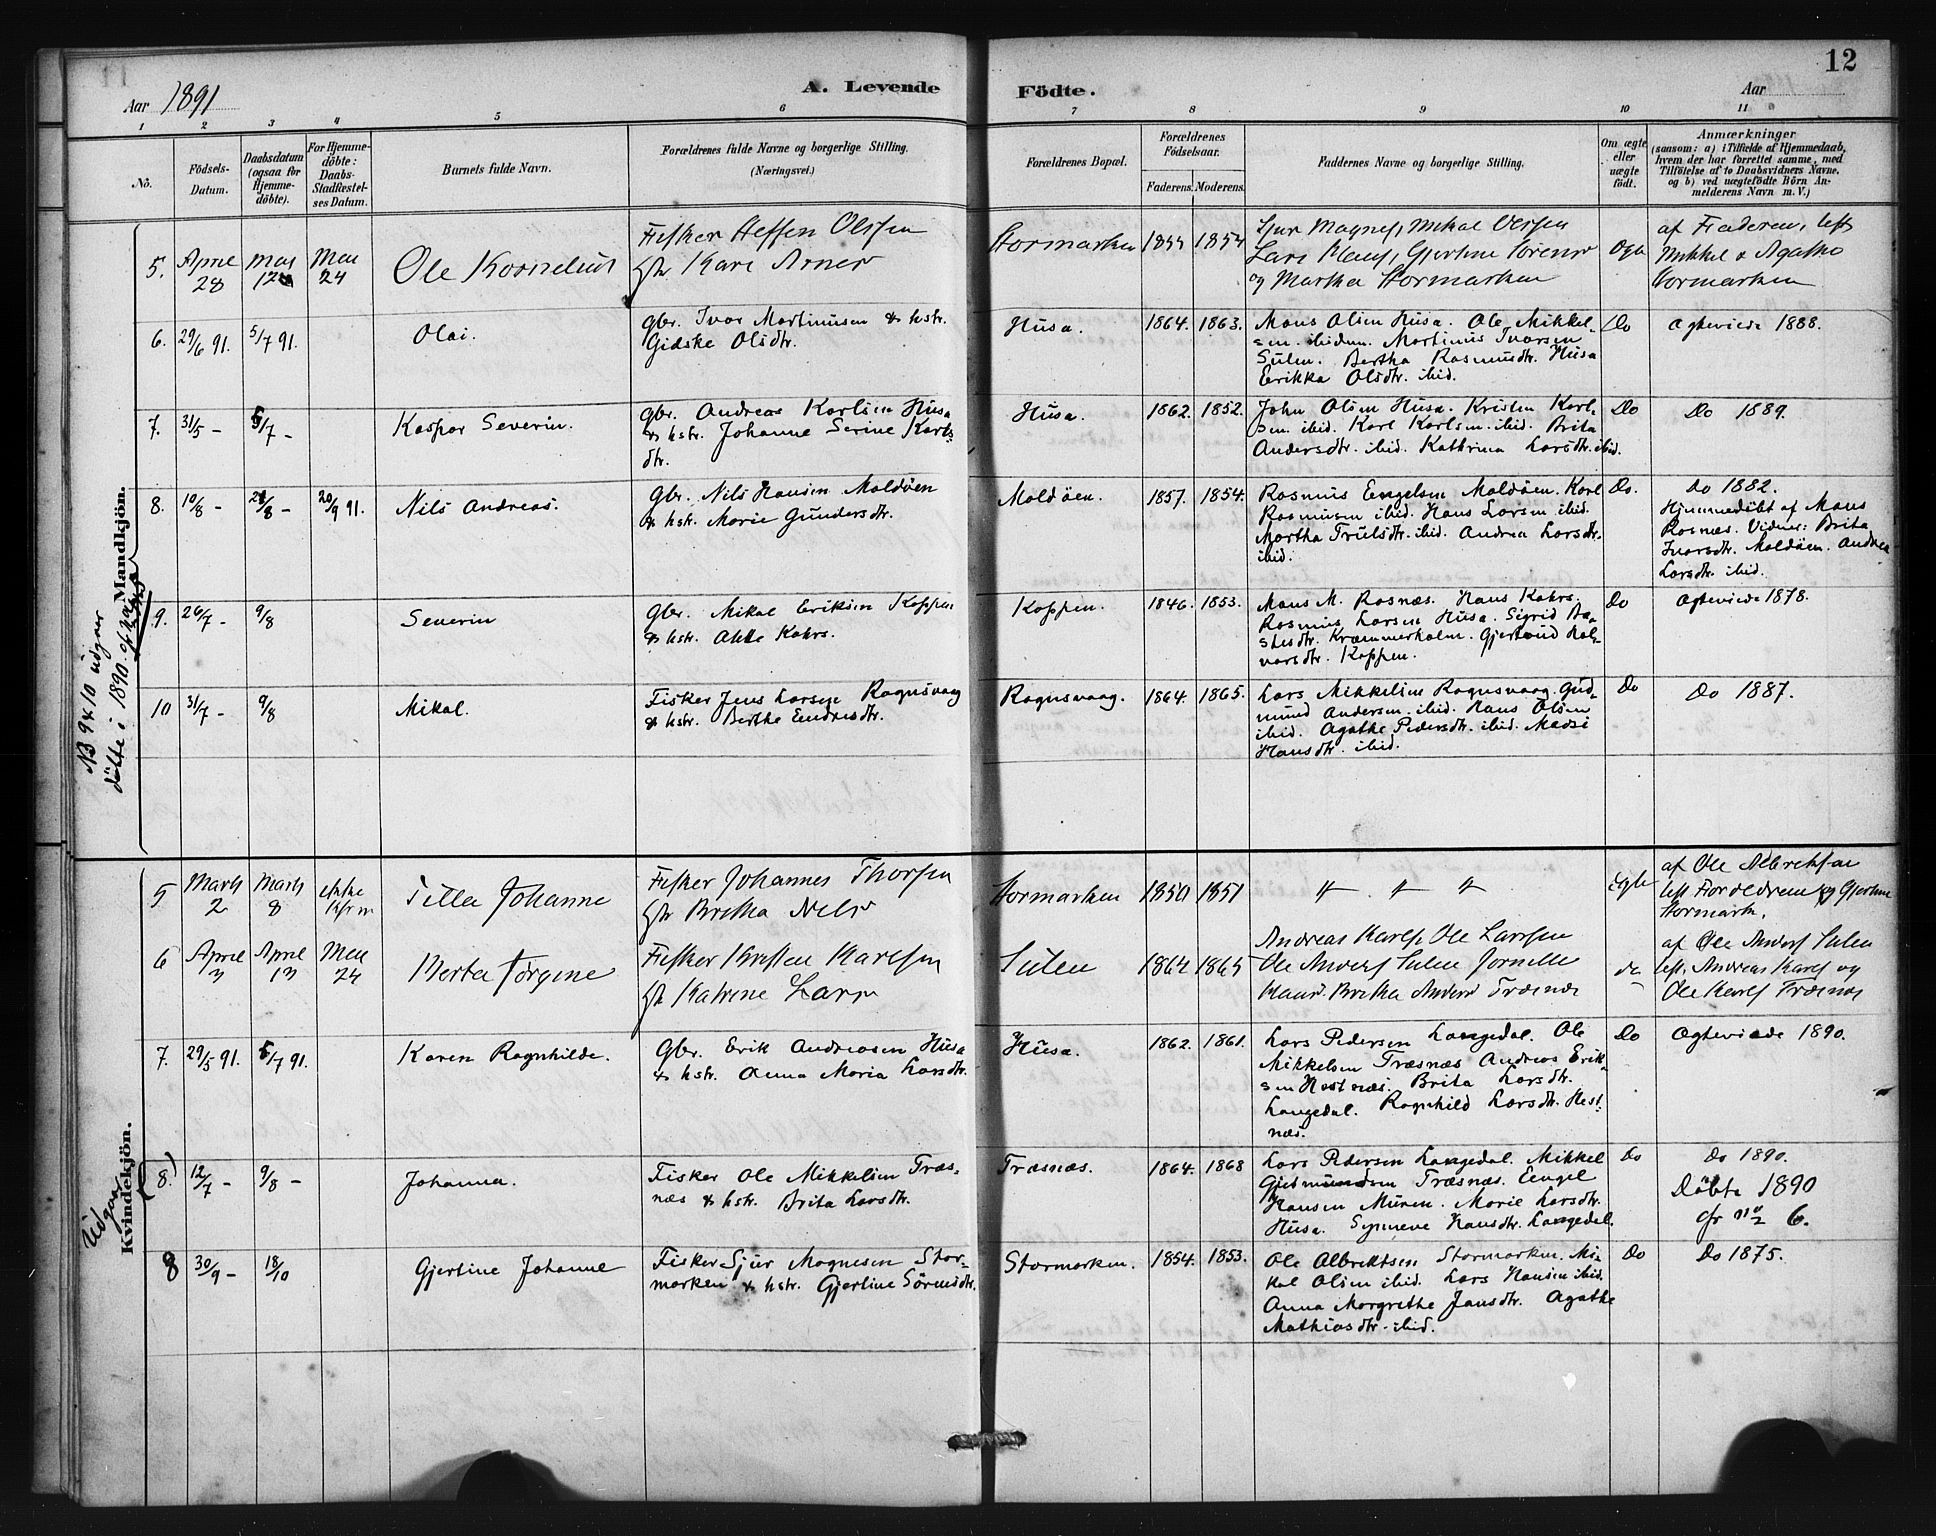 12
Aar 1891
A. Levende Födte.
Aar
1 2 3 4 5 6 7 8 9 10 11
No.
Födsels-Datum.
Daabsdatum (ogsaa for Hjemme-döbte).
For Hjemme-döbte: Daabs-Stadfæstel-ses Datum.
Barnets fulde Navn.
Forældrenes fulde Navne og borgerlige Stilling. (Næringsvei.)
Forældrenes Bopæl.
Forældrenes Födselsaar.
Faderens. Moderens.
Faddernes Navne og borgerlige Stilling.
Om ægte eller uægte födt.
Anmærkninger
(saasom: a) i Tilfælde af Hjemmedaab,
hvem der har forrettet samme, med
Tilföielse af to Daabsvidners Navne,
og b) ved uægtefödte Börn An-
melderens Navn m. V.)
Mandkjön.
NB 9 & 10 udgaar
döbte i 1890.
5. April 28 Mai 12 Mai 24 Ole Kornelius
Fisker Steffen Olssen
Kari Arner
Stormarken 1854
Sjur Magnes, Mikal Olssen
og Martha Stormarken
af Faderen, test
Mikkel & Agatha
Stormarken
6. 29/6 91. 5/7 91. Olai.
Gbr. Ivar Martinusen & hstr.
Gidske Olsdtr.
Husa. 1864. 1863.
Mons Olsen Husa. Ole Mikkel-
sen ibidem. Martinus Ivarsen
Sulen. Bertha Rasmusdtr. Husa
Erikka Olsdtr. ibid.
Do Ægteviede 1888.
7. 31/5 - 5/7 - Kaspar Severin.
Gbr. Andreas Karlsen Husa
& hstr. Johanne Serine Karls
dtr.
Husa. 1862. 1852.
John Olsen Husa. Kristen Karl-
sen ibid. Karl Karlsen ibid. Brita
Andersdtr. ibid. Kathrina Larsdtr. ibid.
Do Do 1889.
8. 10/8 - 28/8 - 20/9 91. Nils Andreas.
Gbr. Nils Hansen Moldöen
& hstr. Marie Gundersdtr.
Moldöen. 1857. 1854.
Rasmus Engelsen Moldöen. Karl
Rasmusen ibid. Hans Larsen ibid.
Martha Trulsdtr. ibid. Andrea Larsdtr.
ibid.
Do. Do 1882.
Hjemmedöbt af Mons
Rosnæs. Vidner: Brita
Ivarsdtr. Moldöen. Andrea
Larsdtr. ibid.
9. 26/7 - 9/8 Severin
Gbr. Mikal Eriksen Koppen
& hstr. Kahrs.
Koppen. 1846. 1853.
Mons M. Rosnæs. Hans Kahrs.
Rasmus Larsen Husa. Sigrid Aa-
stesdtr. Kræmmerholm. Gjertrud Hal-
vorsdtr. Koppen.
Do Ægteviede 1878.
10 31/7 - 9/8 Mikal.
Fisker Jens Larsen Rognsvaag
& hstr. Berthe Endresdtr.
Rognsvaag. 1864. 1865.
Lars Mikkelsen Rognsvaag. Gud-
mund Andersen ibid. Hans Olsen
ibid. Agathe Pedersdtr. ibid. Madsi
Hansdtr. ibid.
Do Do 1887.
Kvindekjön.
5 Marts 2 Marts 8 Tilla Johanne
Fisker Johannes Thorsen
Britha Nels
Stormarken 1850 1851
Egte
af Ole Albrektsen
test Forældrene og Gjertine
Stormark.
6 April 3 April 13 Mai 24 Berta Jørgine
Fisker Kristen Karlsen
Katrine Lars
Sulen 1864 1865
Andreas Karls, Ole Larssen
Ole Anders Sulen
Britha Anders Træsnæs
do
af Ole Anders Sulen
test. Andreas Karls og
Ole Karls Træsnæs
7. 29/5 91. 5/7 91. Karen Ragnhilde.
Gbr. Erik Andreasen Husa
& hstr. Anna Maria Larsdtr.
Husa. 1862. 1861.
Lars Pedersen Langedal. Ole
Mikkelsen Træsnæs Andreas Erik-
sen Hestnæs. Brita Larsdtr.
Langedal. Ragnhild Larsdtr. Hest-
næs.
Do Ægteviede 1890.
Udgaar
8. 12/7 - 9/8 - Johanna.
Fisker Ole Mikkelsen Træs-
næs & hstr. Brita Larsdtr.
Træsnæs. 1864. 1868
Lars Pedersen Langedal. Mikkel
Gudmundsen Træsnæs. Engel
Hansen Muren. Marie Larsdtr.
Husa. Synneve Hansdtr. Langedal.
Do Do 1890.
Döbte 1890
cfr No 6.
8 30/9 - 18/10 Gjertine Johanne
Fisker Sjur Magnesen Stor-
marken & hstr. Gjertine Sörensdtr.
Stormarken. 1854. 1853.
Ole Albrektsen Stormarken. Mi-
kal Olsen ibid. Lars Hansen ibid.
Anna Margrethe Jansdtr. Agathe
Mathiasdtr. ibid.
Do Do 1875.